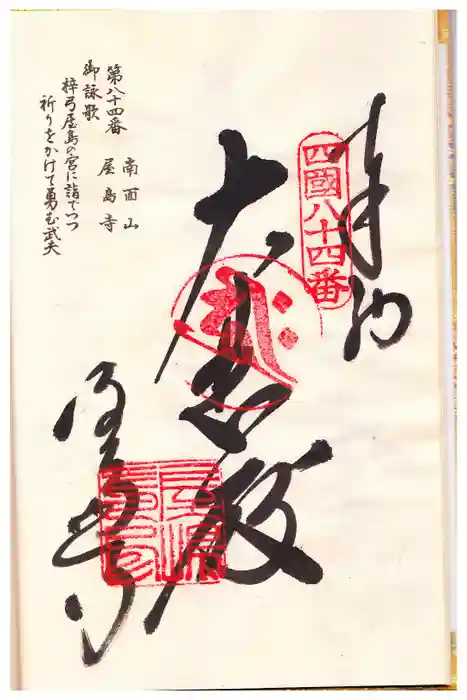 奉納
四國八十四番
大悲殿
屋島寺
第八十四番 南面山
屋島寺
御詠歌
梓弓屋島の宮に詣でつつ
祈りをかけて勇む武夫